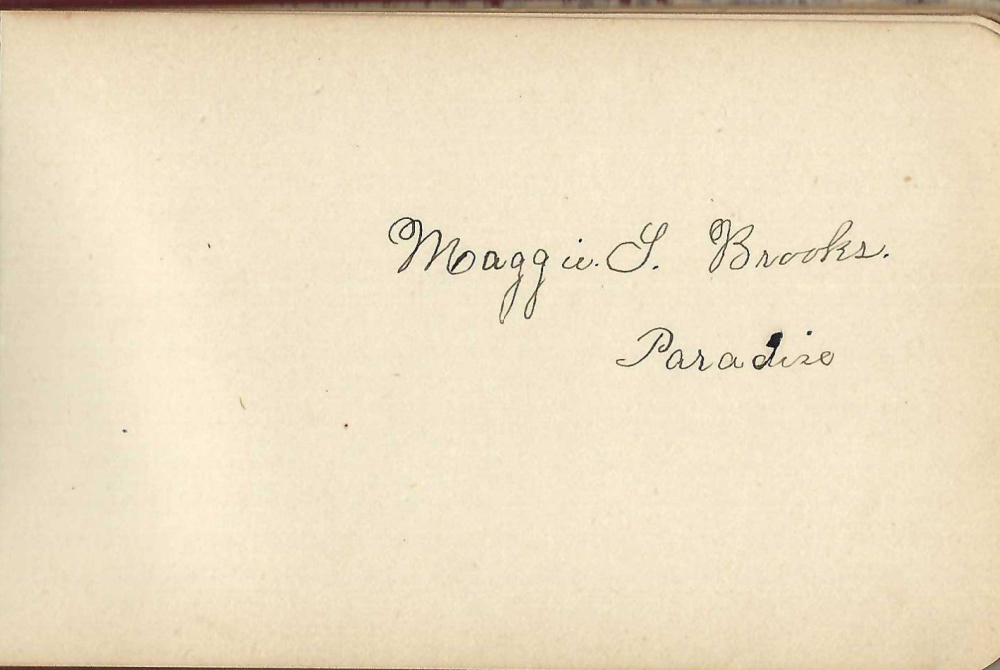 Maggie. S. Brooks.
Paradise